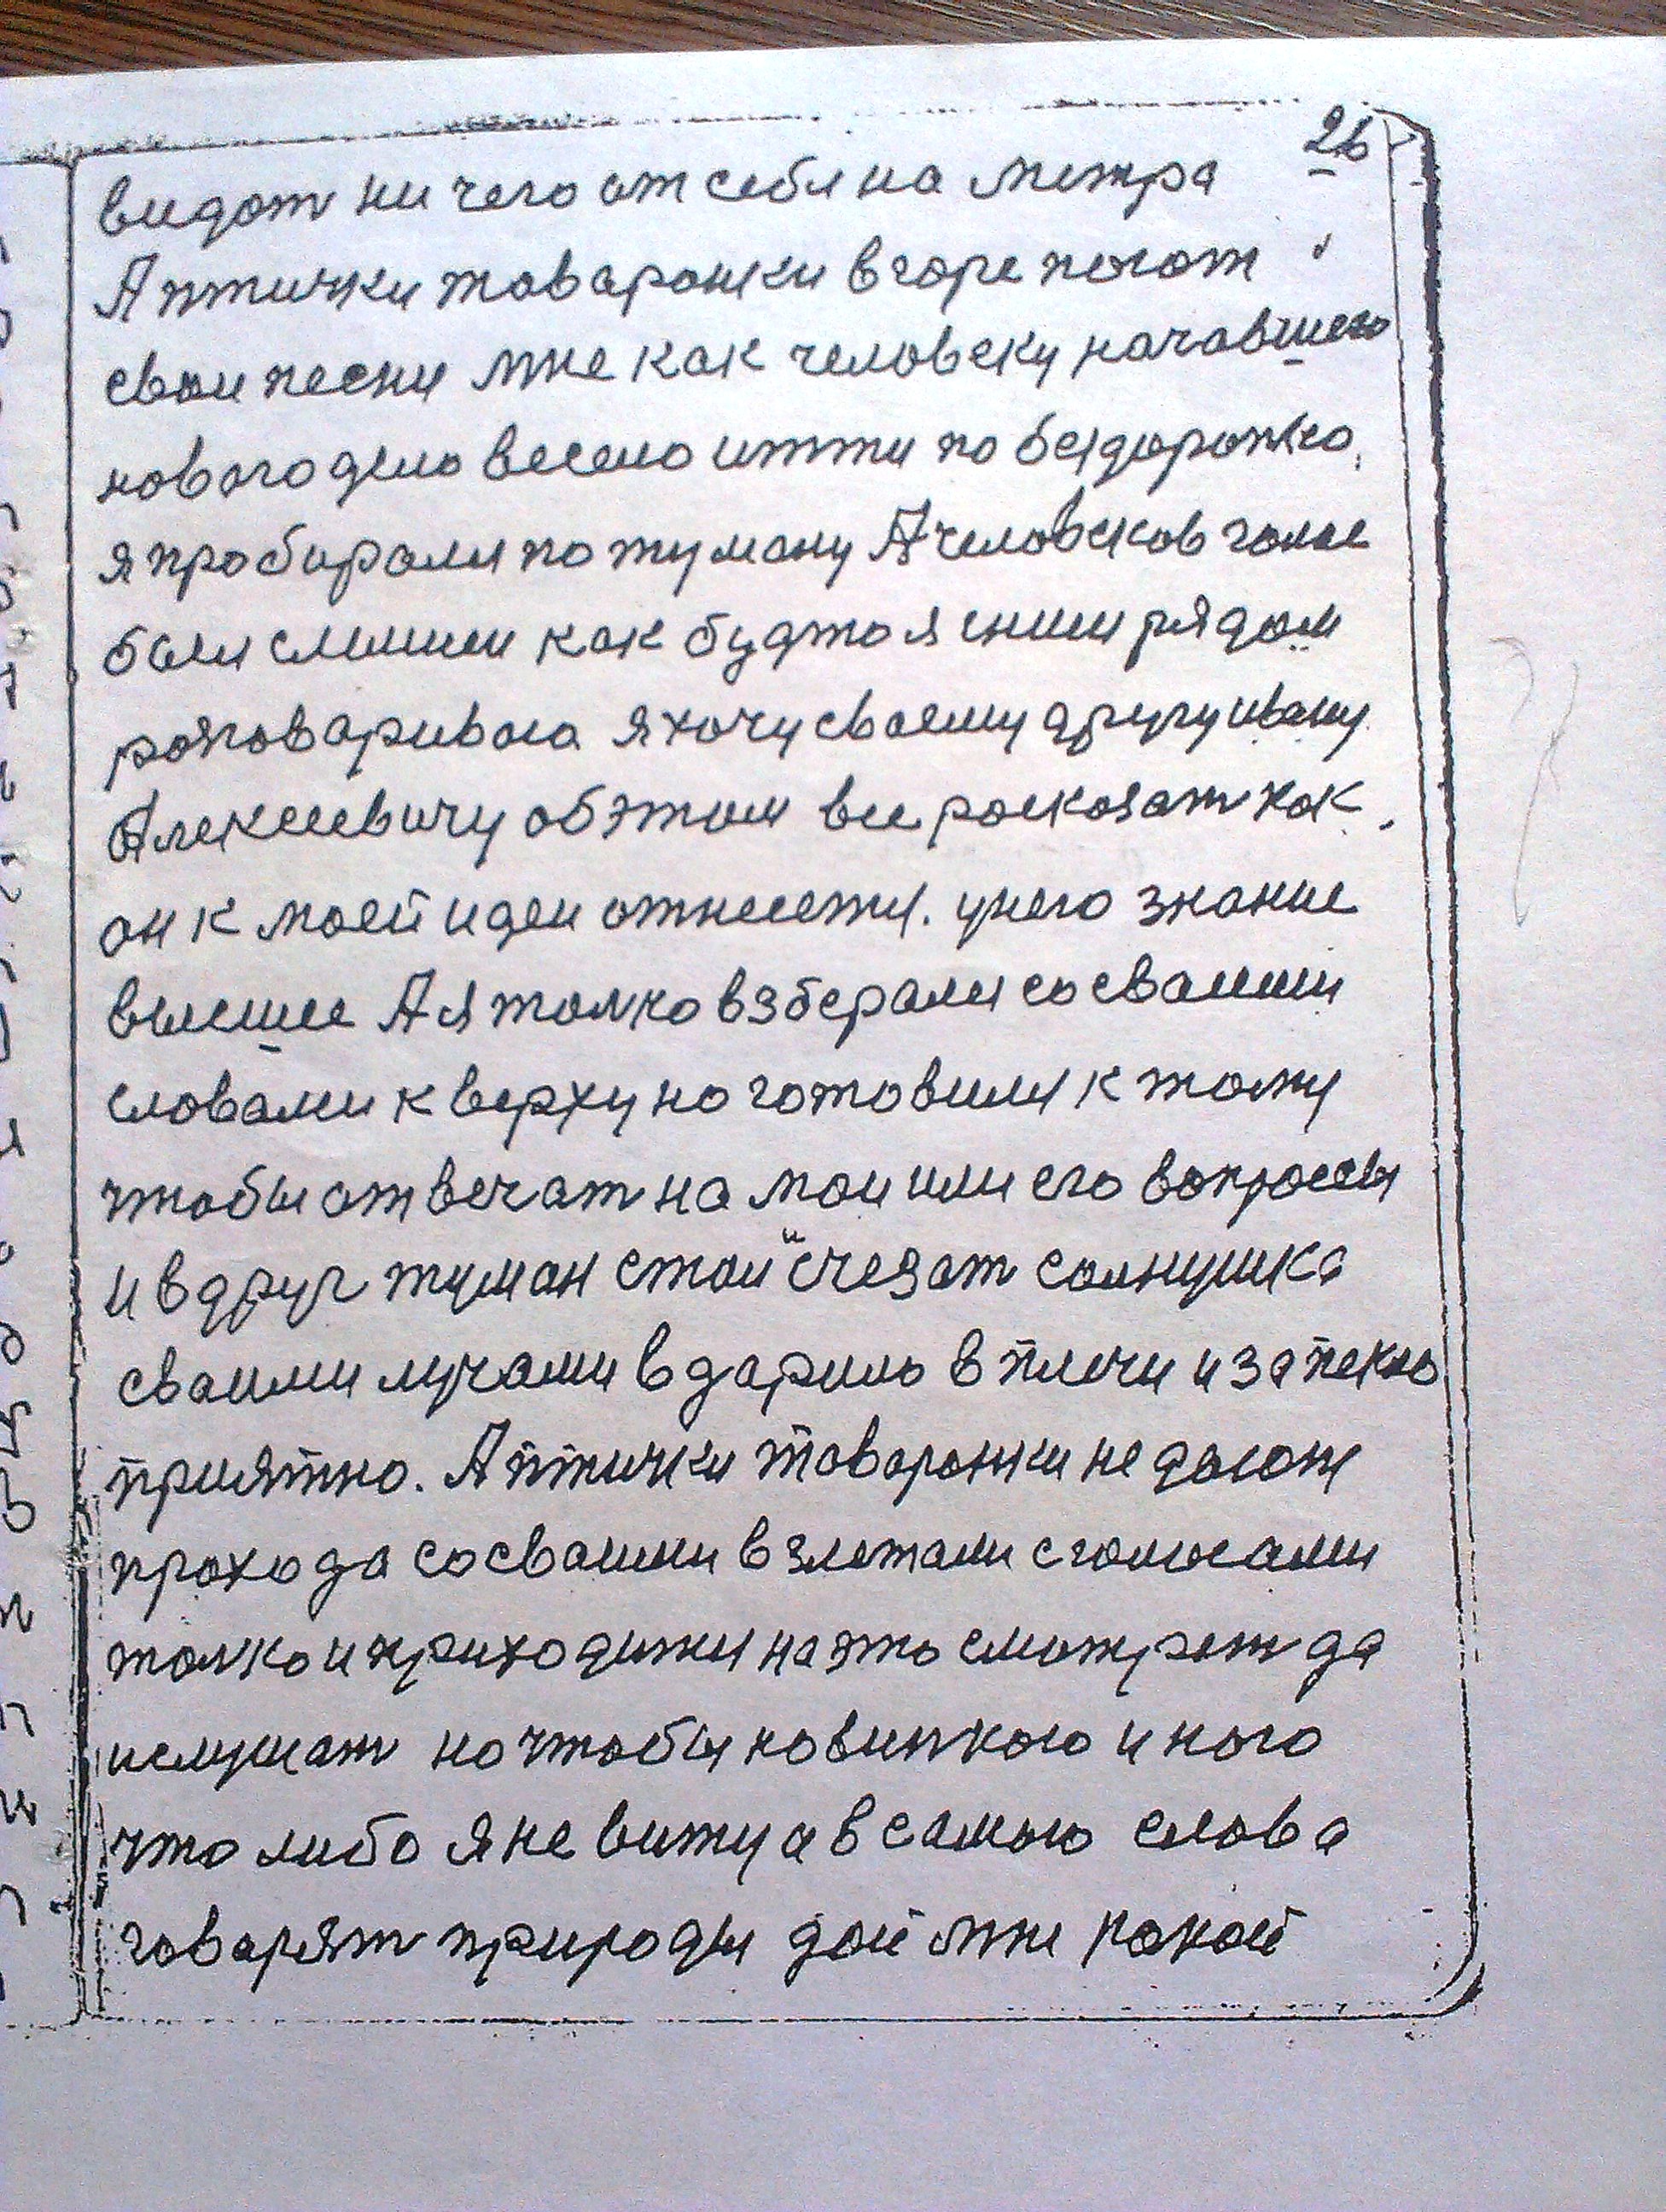 26
видат ни чего от себя на метра
А птички товаронки в горе поют
свои песни мне как человеку начавшего
нового дело весело итти по бездорожю,
я пробирался по туману А человеков голос
был слышен как будто я сними рядом
розговариваю я хочу своему другу ивану
Алексеевичу об этом все росказат как
он к моей идеи отнесется. унего знание
высшее А я толко взберался со своими
словами к верху но готовился к тому
чтобы отвечат на мои или его вопроссы
и вдруг туман стои счезат солнушка
своими лучами вдарило в плечи и запекло
приятно. А птички товоронки не дают
прохода со своими взлетами с голосами
толко и приходится на это смотрет да
и слушат но чтобы новинкою и ного
что либо я не вижу а в самою слова
говарят природы дай мне покой